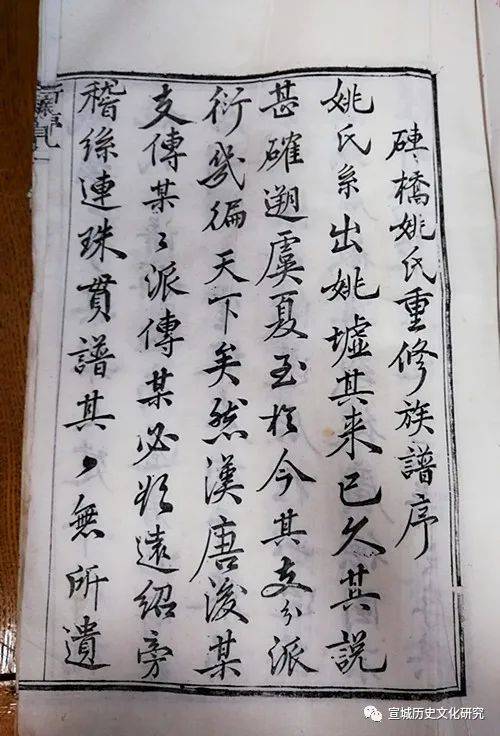 磚橋姚氏重修族譜序
姚氏系出姚墟其来已久其説
甚確遡虞夏至於今其支分派
衍幾徧天下矣然漢唐後某
支傳某〻派傳某必欲遠紹旁
稽絲連珠貫譜其〻無所遺
宣城历史文化研究